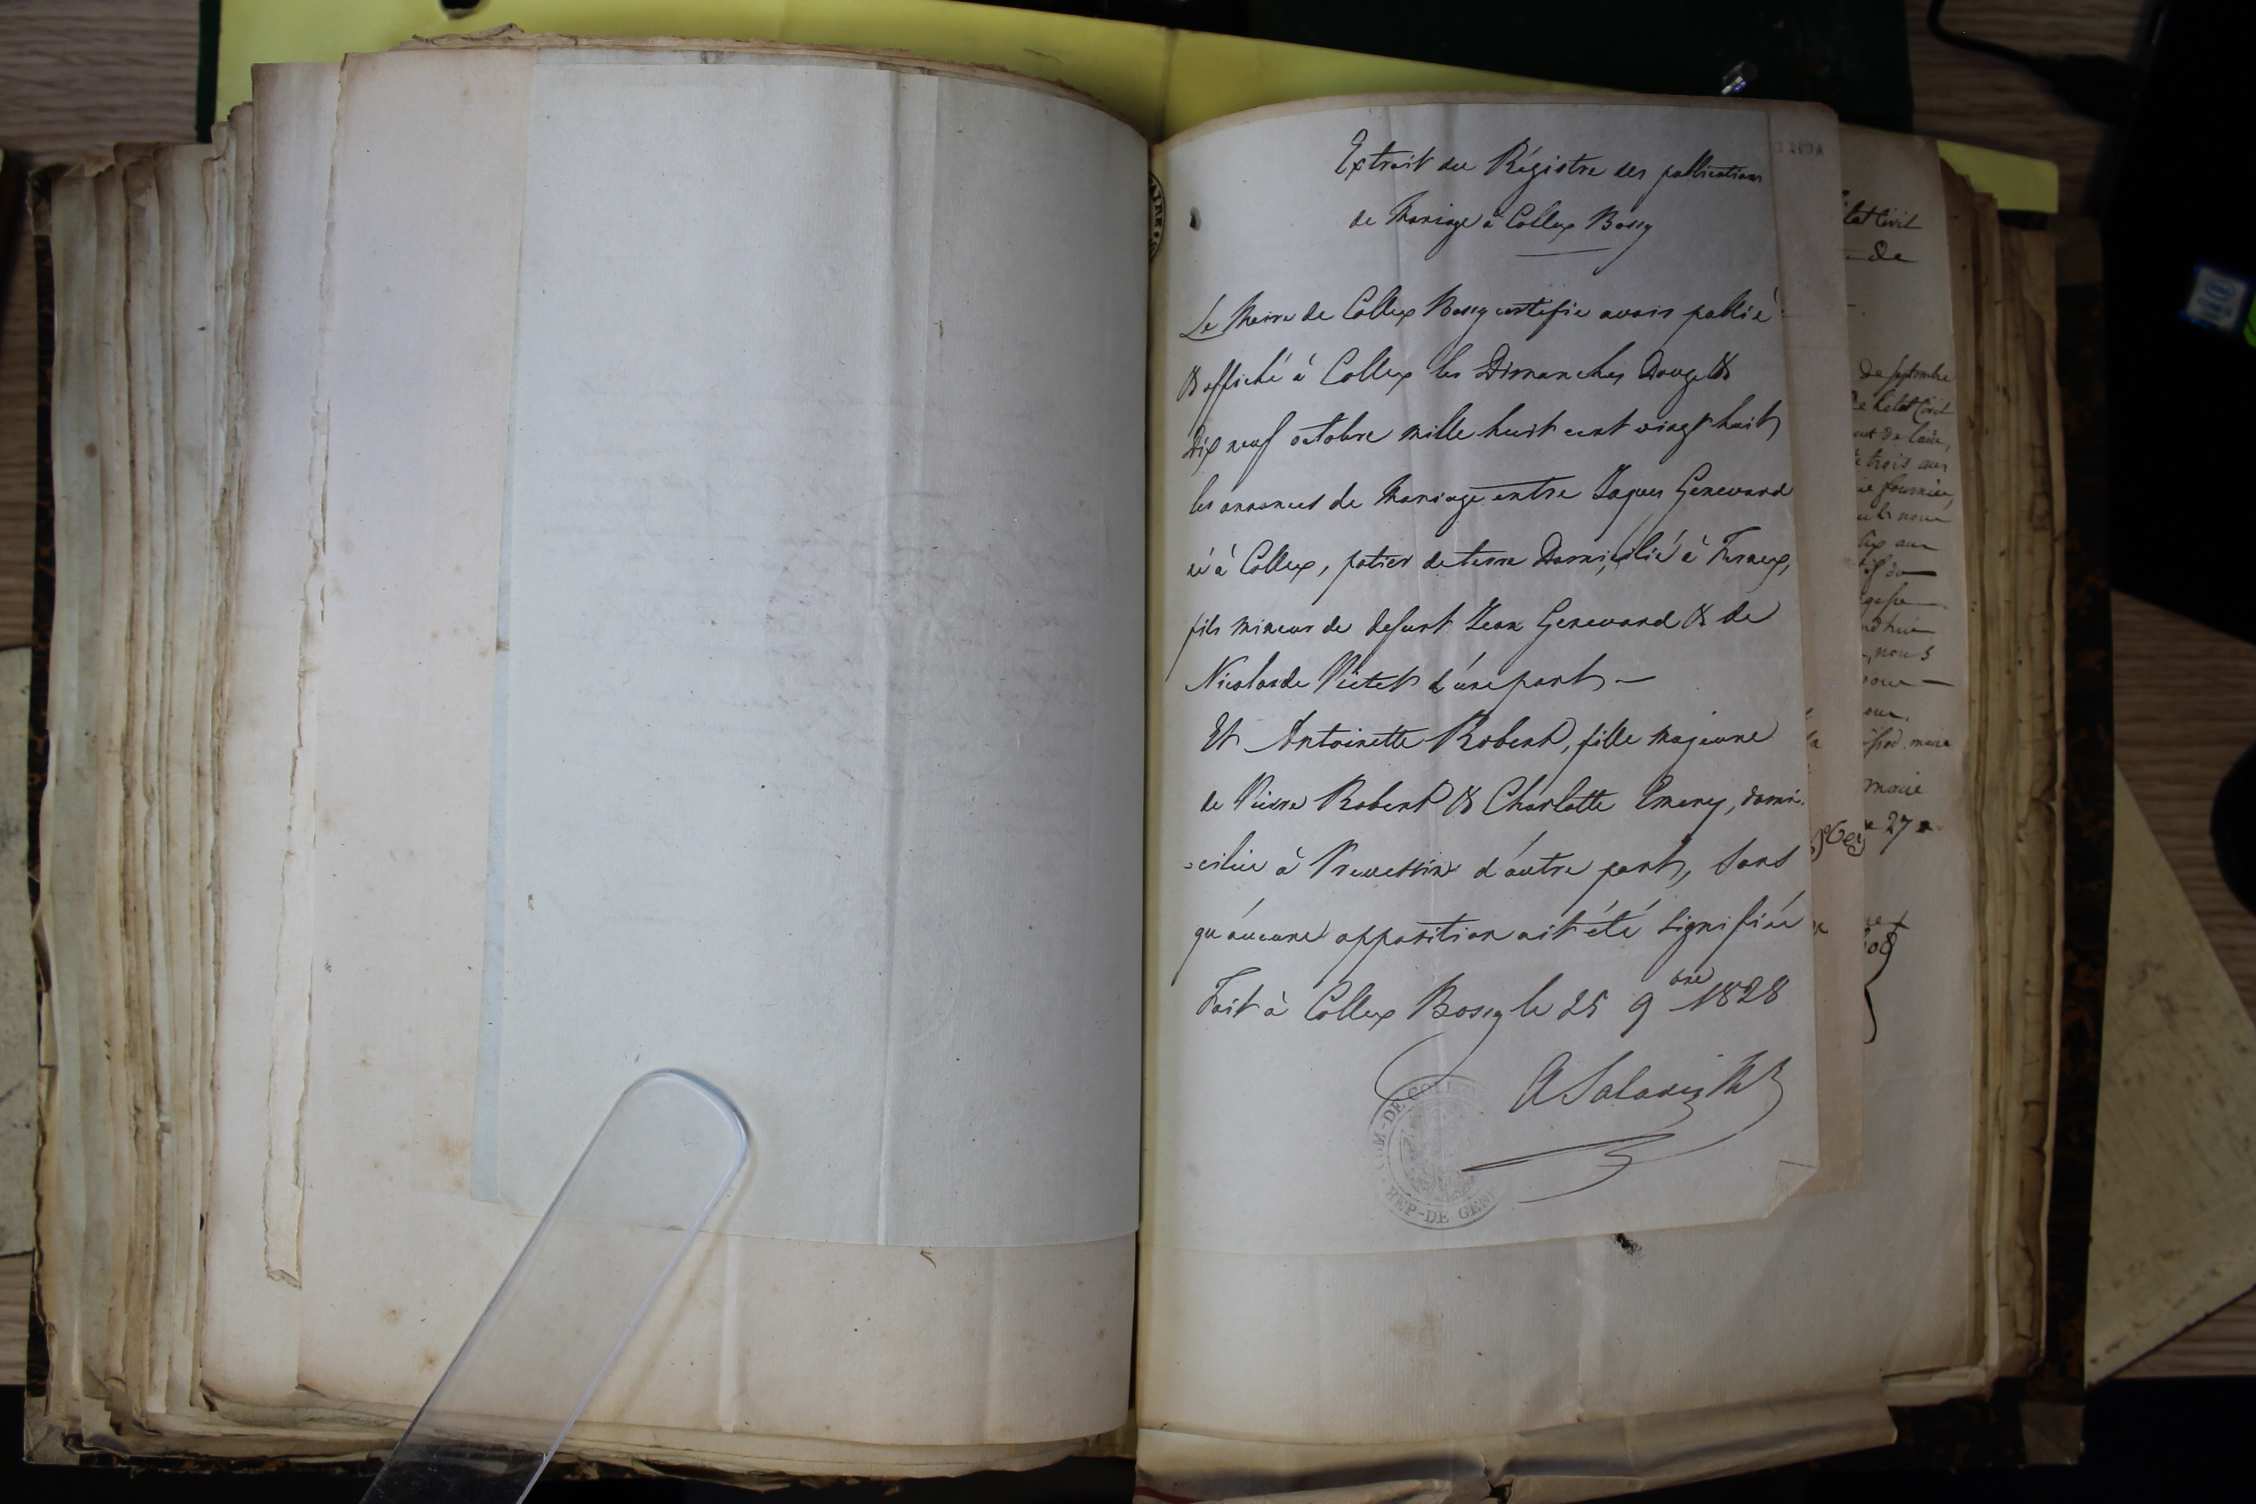 Extrait du Régistre des publications
de Mariage à Collex Bossy
Le Maire de Collex Bossy certifie avoir publié
& affiché à Collex les Dimanches Douze &
Dix neuf octobre mille huit cent vingt huit
les annonces de Mariage entre Jaques Genevard
né à Collex, potier de terre Domicilié à Fernex,
fils mineur de defunt Jean Genevard & de
Nicolarde Pictet d'une part —
Et Antoinette Robert, fille majeure
de Pierre Robert & Charlotte Emery, domi-
-ciliée à Prevessin d'autre part, sans
qu'aucune opposition ait été signifiée
Fait à Collex Bossy le 25 9bre 1828
A Saladin
COM-DE COLLEX
REP-DE GEN
état Civil
de
de septembre
trois ans
fournier,
nous
maire
27